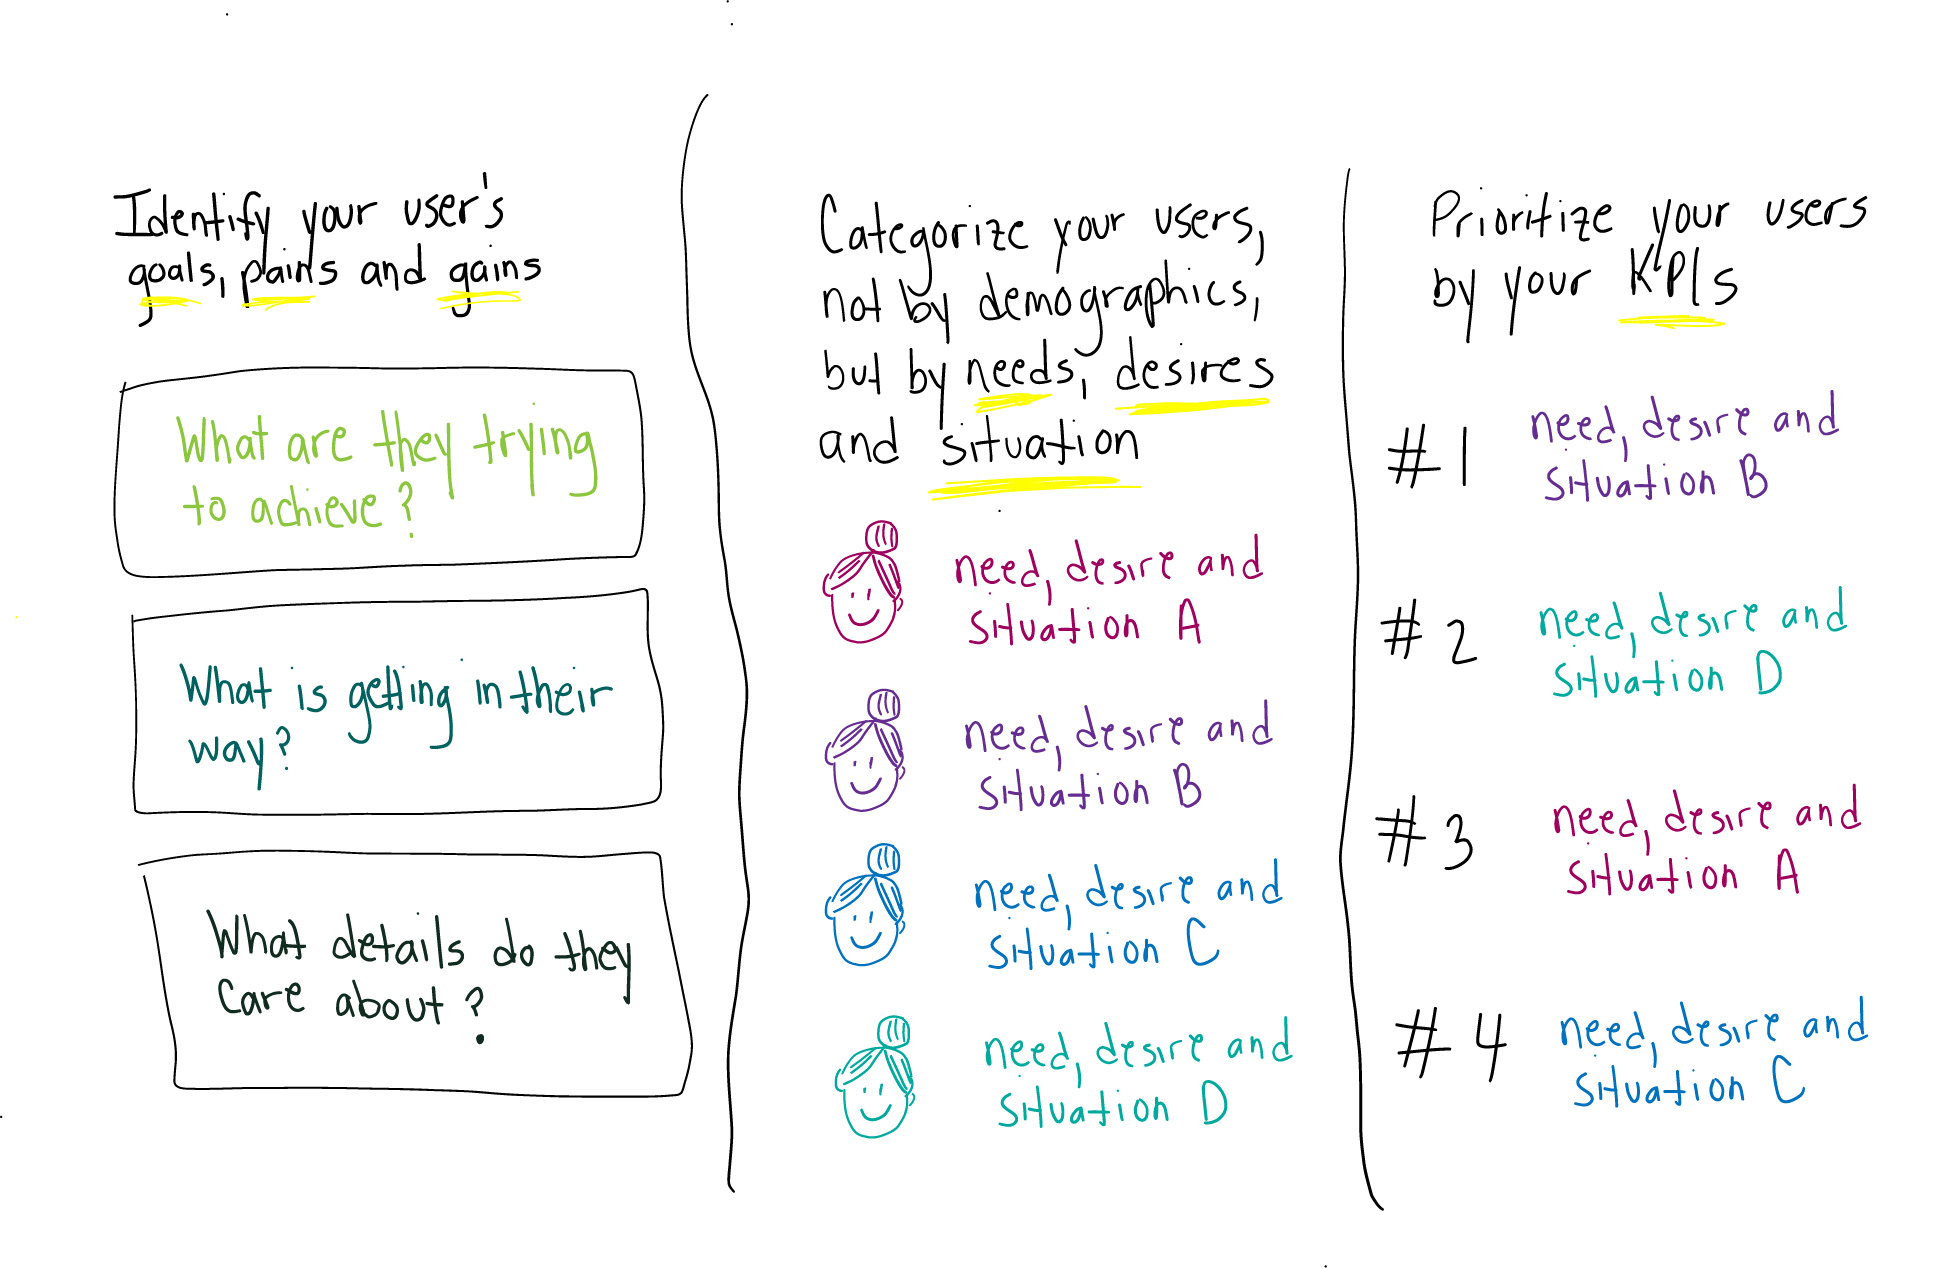 Identify your user's
goals, pains and gains
What are they trying
to achieve?
What is getting in their
way?
What details do they
care about?
Categorize your users,
not by demographics,
but by needs, desires
and situation
need, desire and
situation A
need, desire and
situation B
need, desire and
situation C
need, desire and
situation D
Prioritize your users
by your KPIs
#1 need, desire and
situation B
#2 need, desire and
situation D
#3 need, desire and
situation A
#4 need, desire and
situation C